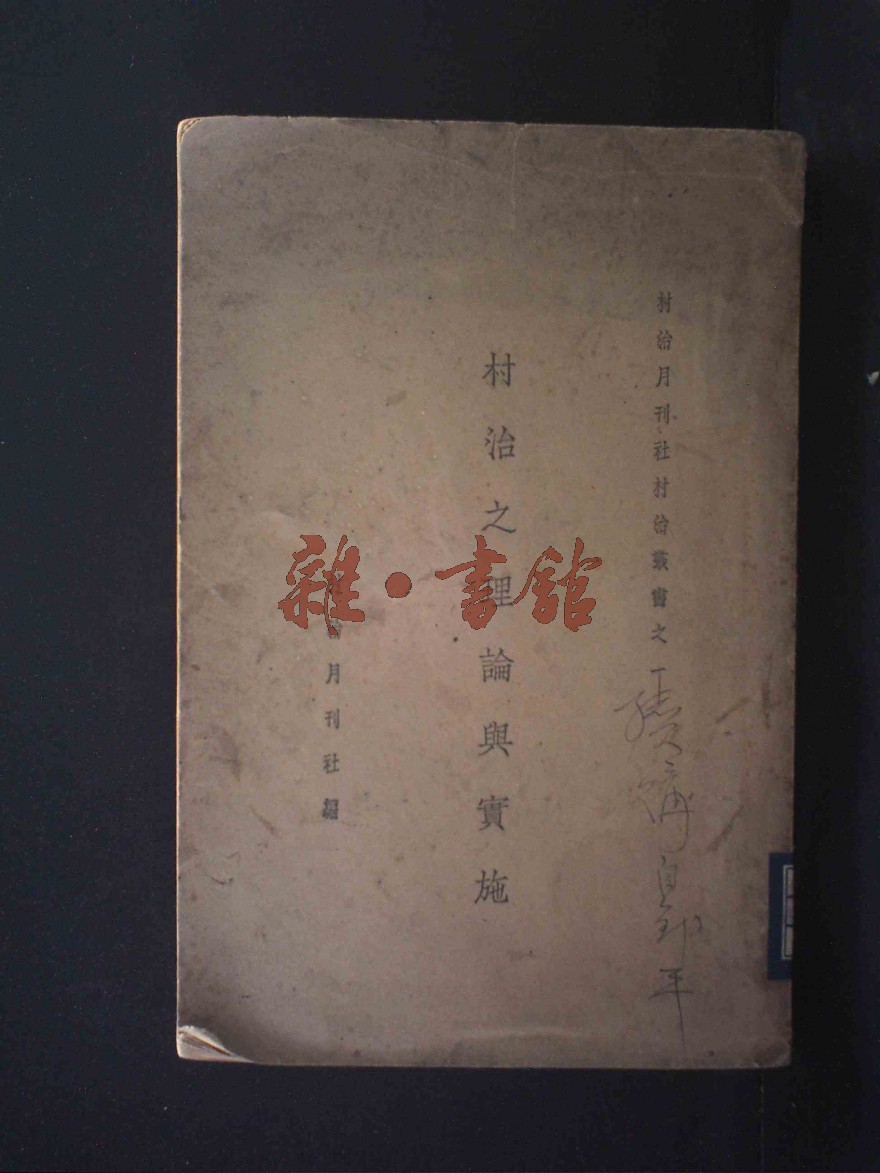 村治月刊社村治叢書之一
村治之理論與實施
村治月刊社編
雜·書館